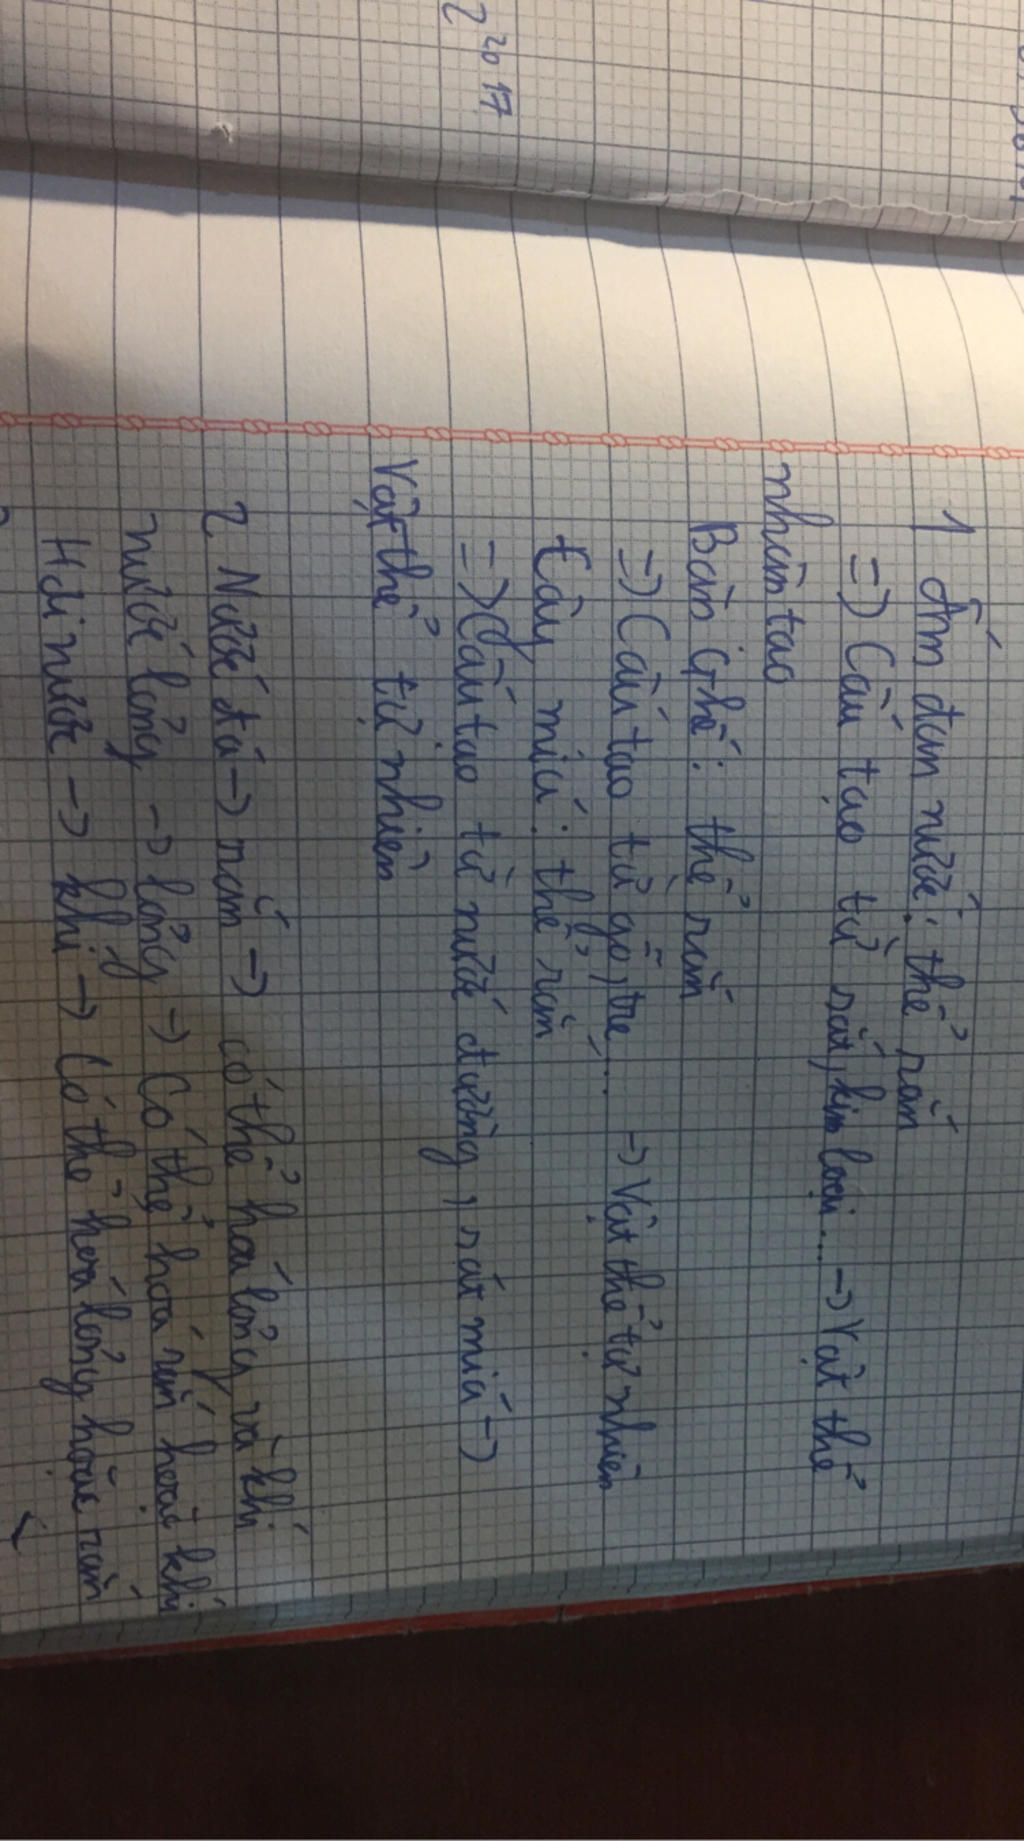 2²⁰17
1 Ấm đun nước: thể rắn
=> Cấu tạo từ sắt, kim loại... -> Vật thể
nhân tạo
Bàn ghế: thể rắn
=> Cấu tạo từ gỗ, tre... -> Vật thể tự nhiên
Cây mía: thể rắn
=> Cấu tạo từ nước đường, rát mía ->
Vật thể tự nhiên
2 Nước đá -> rắn -> có thể hoá lỏng và khí
nước lỏng -> lỏng -> Có thể hoá rắn hoặc khí
Hơi nước -> khí -> Có thể hoá lỏng hoặc rắn